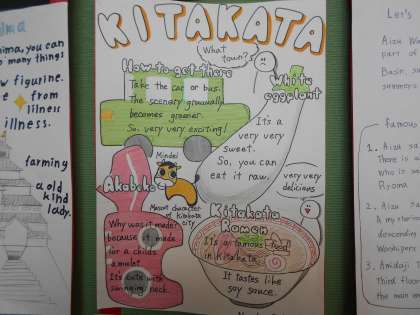 ima
ima, you can
o many things
w figurine.
e from
illness
illness.
farming
a old
kind
lady.
KITAKATA
What
town?
How to get there
Take the car or bus.
The scenery gradually
becomes greener.
So, very very exciting!
White
eggplant
It's a
very very
sweet.
So, you can
eat it raw.
very very
delicious
Mindel
Mascot character
of Kitakata
city
Akabeko
Why was it made?
because it made
for a child's
amulet.
It's cute with
swinging neck.
Kitakata
Ramen
It's a famous food
in Kitakata.
It tastes like
soy sauce.
Let's
Aizu Wa
part of
Basin, su
summers
famous
1. Aizu Wa
There is a
Who is sa
Ryona
2. A
A mysterio
descending
Worshipers
3. Amidaji T
Third floor
the main